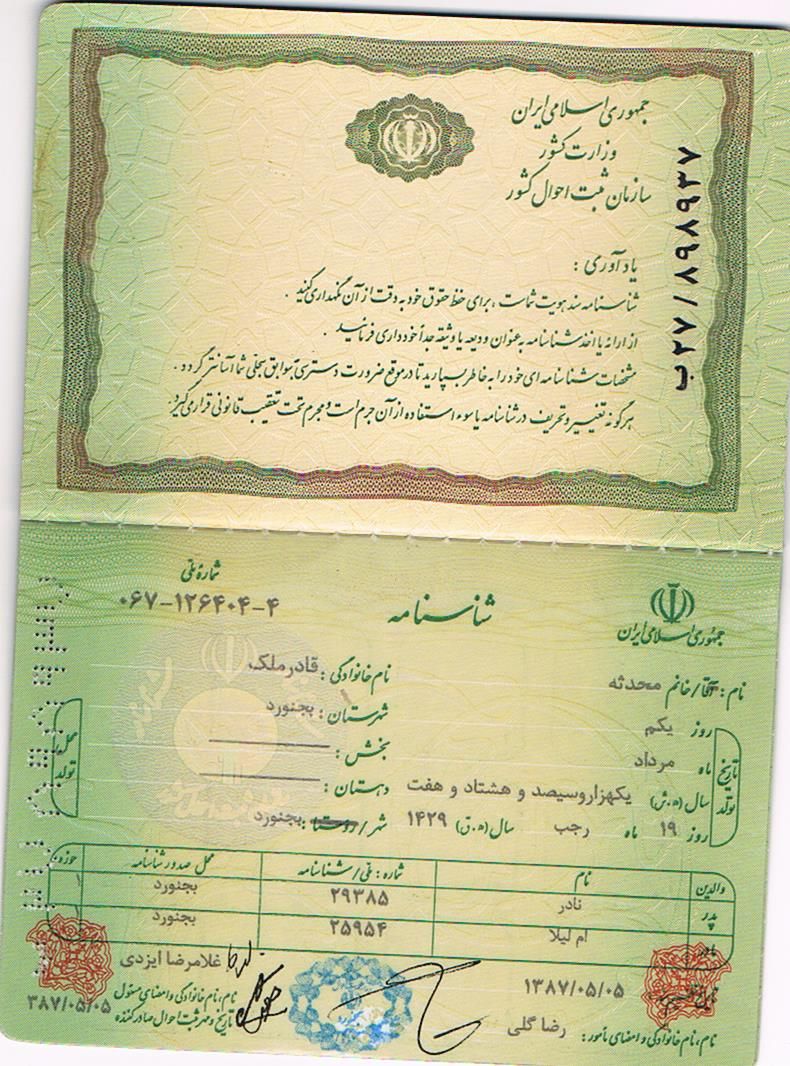 جمهوری اسلامی ایران
وزارت کشور
سازمان ثبت احوال کشور
ب۲۷/۸۹۸۹۳۷
یادآوری :
شناسنامه سند هویت شماست ، برای حفظ حقوق خود به دقت از آن نگهداری کنید .
از ارائه یا اخذ شناسنامه به عنوان ودیعه یا وثیقه جداً خودداری فرمائید .
مشخصات شناسنامه ای خود را به خاطر بسپارید تا در موقع ضرورت دسترسی بسوابق سجلی شما آسانتر گردد .
هرگونه تغییر و تحریف در شناسنامه یا سوء استفاده از آن جرم است و مجرم تحت تعقیب قانونی قرار می گیرد .
جمهوری اسلامی ایران
شناسنامه
شماره ملی
۰۶۷-۱۲۶۴۰۴-۴
نام : آقا/خانم محدثه
نام خانوادگی : قادرملک
تاریخ تولد
روز یکم
ماه مرداد
سال (ه.ش) یکهزاروسیصد و هشتاد و هفت
روز ۱۹ ماه رجب سال (ه.ق) ۱۴۲۹
محل تولد
شهرستان : بجنورد
بخش :
دهستان :
شهر/روستا : بجنورد
والدین نام شماره : ملی/شناسنامه محل صدور شناسنامه حوزه
پدر نادر ۲۹۳۸۵ بجنورد ۱
مادر ام لیلا ۲۵۹۵۴ بجنورد
۱۳۸۷/۰۵/۰۵
رضا گلی
نام، نام خانوادگی و امضای مأمور :
غلامرضا ایزدی
نام، نام خانوادگی و امضای مسئول
تاریخ و مهر ثبت احوال صادرکننده
۳۸۷/۰۵/۰۵